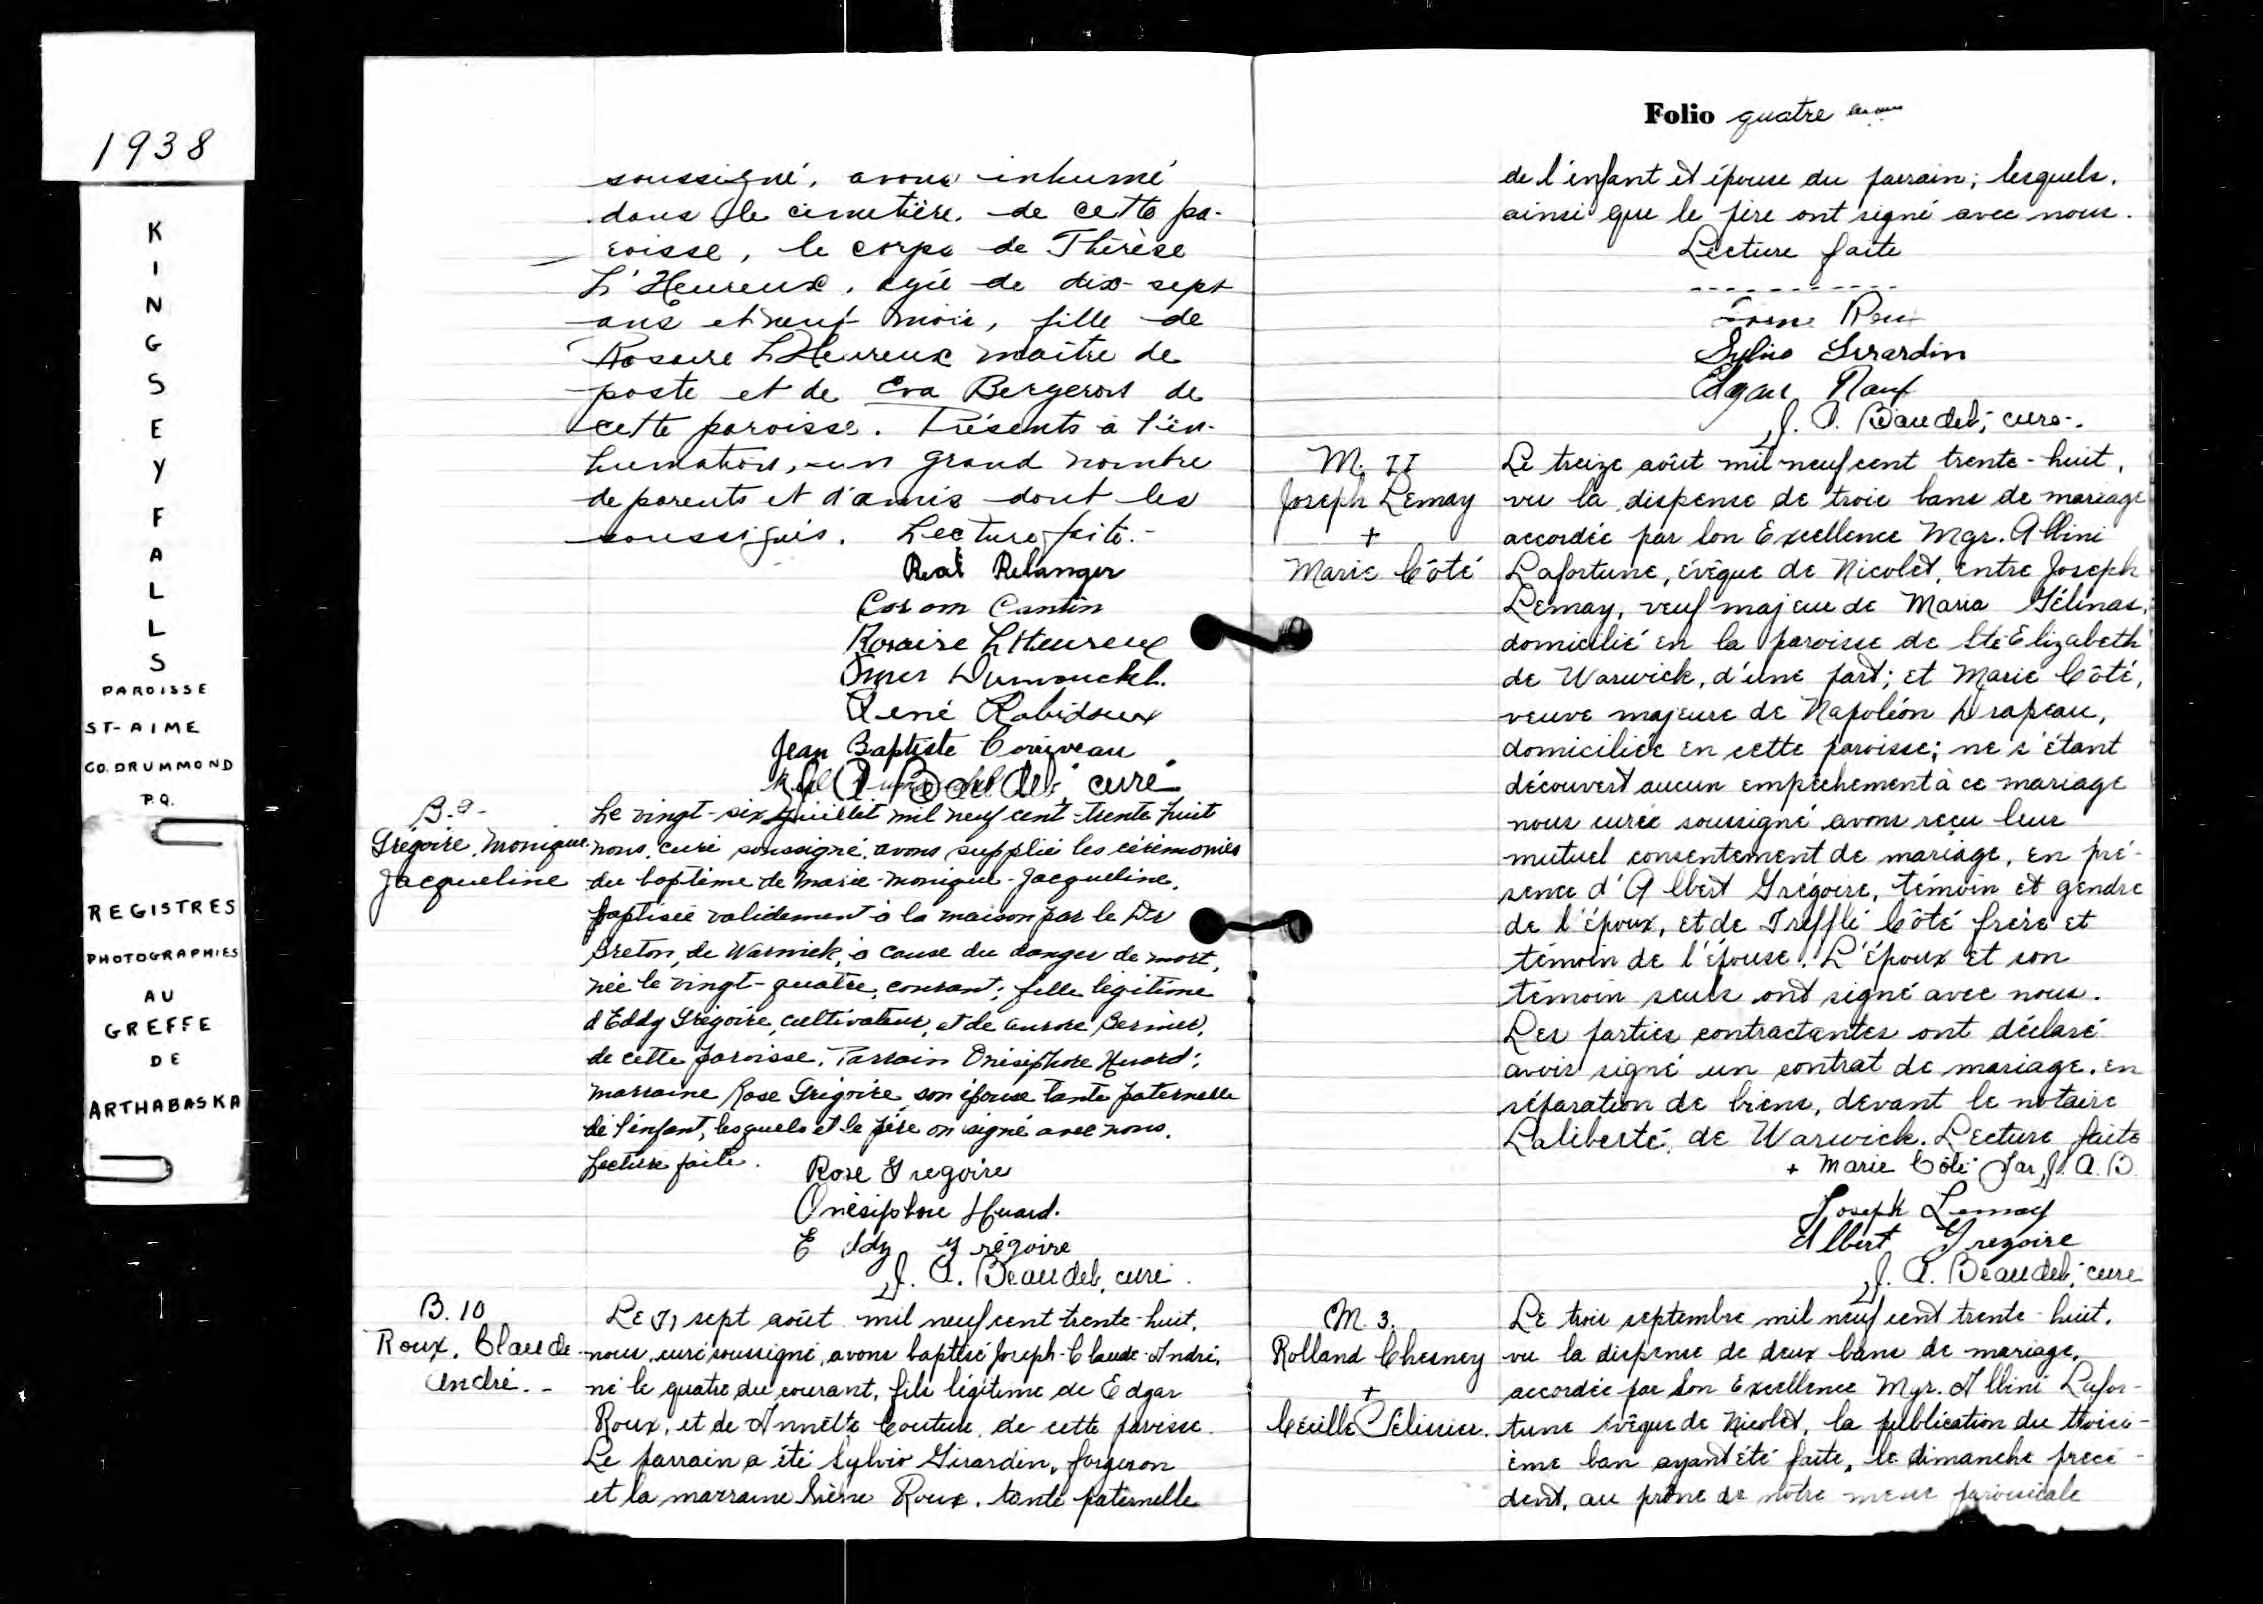 1938
KINGSEY FALLS
PAROISSE
ST-AIME
CO. DRUMMOND
P.Q.
REGISTRES
PHOTOGRAPHIES
AU
GREFFE
DE
ARTHABASKA
soussigné, avons inhumé
dans le cimetière de cette pa-
roisse, le corps de Thérèse
L'Heureux, agée de dix-sept
ans et neuf mois, fille de
Rosaire L'Heureux maître de
poste et de Eva Bergeron de
cette paroisse. Présents à l'in-
humation, un grand nombre
de parents et d'amis dont les
soussignés. Lecture faite.-
Real Belanger
Cantin
Rosaire L'Heureux
Omer Dumouchel.
René Robidoux
Jean Baptiste Corriveau
curé
B. 9-
Grégoire, Monique
Jacqueline
Le vingt-six juillet mil neuf cent-trente huit
nous, curé soussigné, avons supplié les cérémonies
du baptême de Marie-Monique-Jacqueline,
baptisée validement à la maison par le Dr
Breton, de Warwick, à cause du danger de mort,
née le vingt-quatre, courant; fille légitime
d'Eddy Grégoire, cultivateur, et de Aurore Bernier,
de cette paroisse. Parrain Onésiphore Huard;
marraine Rose Grégoire son épouse tante paternelle
de l'enfant, lesquels et le père on signé avec nous.
Lecture faite.
Rose Gregoire
Onésiphore Huard.
Eddy Grégoire
J. A. Beaudet, curé.
B. 10
Roux, Claude-
André.-
Le sept août mil neuf cent trente-huit,
nous, curé soussigné, avons baptisé Joseph-Claude-André,
né le quatre du courant, fils légitime de Edgar
Roux, et de Annette Couture, de cette paroisse.
Le parrain a été Sylvio Girardin, forgeron
et la marraine Roux, tante paternelle
Folio quatre
de l'enfant et épouse du parrain; lesquels,
ainsi que le père ont signé avec nous.
Lecture faite
-----------
Roux
Sylvio Girardin
Edgar Roux
J. A. Beaudet, curé-.
M. II
Joseph Lemay
+
Marie Côté
Le treize août mil-neuf cent trente-huit,
vu la dispense de trois bans de mariage
accordée par Son Excellence Mgr. Albini
Lafortune, évêque de Nicolet, entre Joseph
Lemay, veuf majeur de Maria Gélinas,
domicilié en la paroisse de Ste Elizabeth
de Warwick, d'une part; et Marie Côté,
veuve majeure de Napoléon Drapeau,
domiciliée en cette paroisse; ne s'étant
découvert aucun empêchement à ce mariage
nous curé soussigné avons reçu leur
mutuel consentement de mariage, en pré-
sence d'Albert Grégoire, témoin et gendre
de l'époux, et de Trefflé Côté frère et
témoin de l'épouse. L'époux et son
témoin seuls ont signé avec nous.
Les parties contractantes ont déclaré
avoir signé un contrat de mariage, en
séparation de biens, devant le notaire
Laliberté, de Warwick. Lecture faite
+ Marie Côté par J. A. B.
Joseph Lemay
Albert Gregoire
J. A. Beaudet, curé
M. 3.
Rolland Chesney
+
Cécille Pelissier.
Le trois septembre mil neuf cent trente-huit,
vu la dispense de deux bans de mariage,
accordée par Son Excellence Mgr. Albini Lafor-
tune évêque de Nicolet, la publication du troisi-
ème ban ayant été faite, le dimanche précé-
dent, au prône de notre messe paroissiale